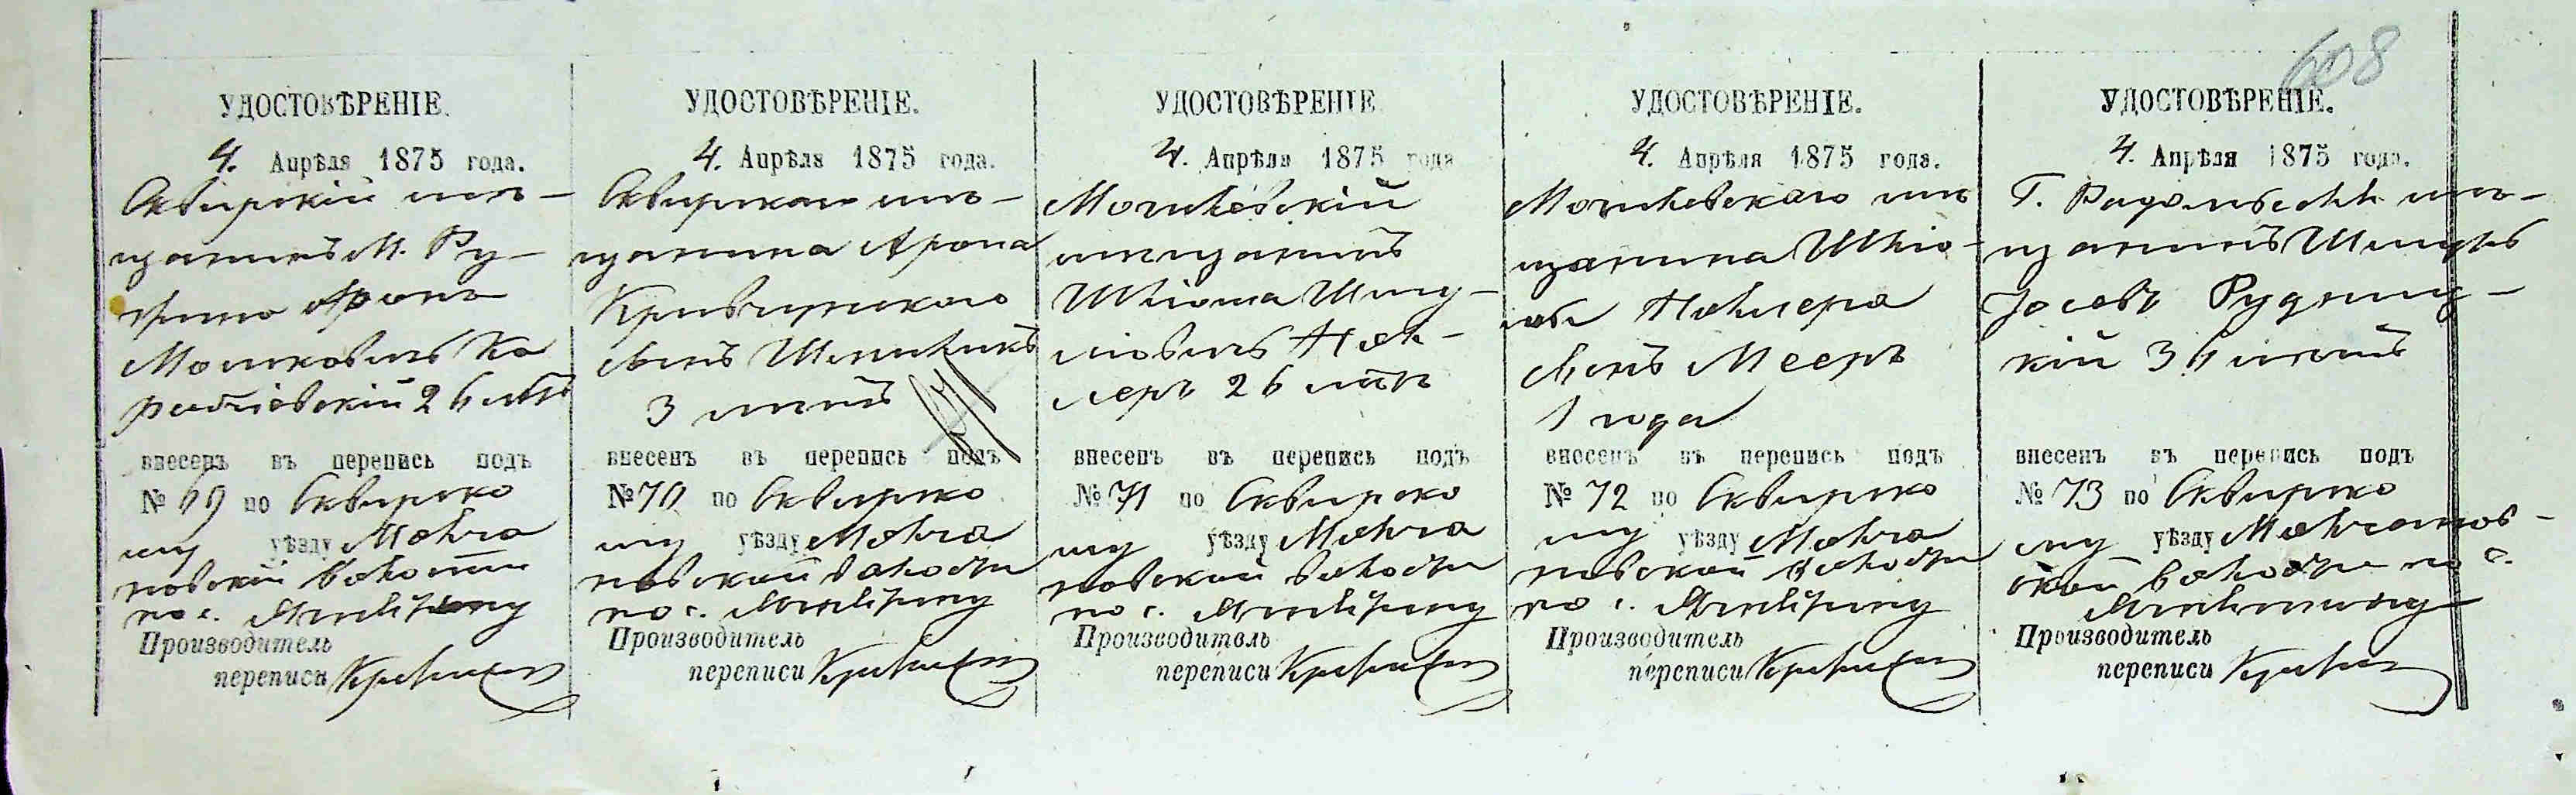 608
УДОСТОВѢРЕНІЕ.
4. Апрѣля 1875 года.
Сквирскій мѣ-
щанинъ М. Ру-
жина Аронъ
Мошковичъ
26 лѣтъ
внесенъ въ перепись подъ
№ 69 по Сквирско
му уѣзду Молча
новской волости
по с.
Производитель
переписи
УДОСТОВѢРЕНІЕ.
4. Апрѣля 1875 года.
Сквирскаго мѣ-
щанина Арона
сынъ
3 лѣтъ
внесенъ въ перепись подъ
№ 70 по Сквирско
му уѣзду Молча
новской волости
по с.
Производитель
переписи
УДОСТОВѢРЕНІЕ
4. Апрѣля 1875 года
Могилевскій
мѣщанинъ
Шлiома Шму-
лiовичъ
леръ 26 лѣтъ
внесенъ въ перепись подъ
№ 71 по Сквирско
му уѣзду Молча
новской волости
по с.
Производитель
переписи
УДОСТОВѢРЕНІЕ.
4. Апрѣля 1875 года.
Могилевскаго мѣ
щанина Шліо-
мы
сынъ Мееръ
1 года
внесенъ въ перепись подъ
№ 72 по Сквирско
му уѣзду Молча
новской волости
по с.
Производитель
переписи
УДОСТОВѢРЕНІЕ.
4. Апрѣля 1875 года.
Г. Радомысля мѣ-
щанинъ Шмуль
Іосевъ Рудниц-
кій 36 лѣтъ
внесенъ въ перепись подъ
№ 73 по Сквирско
му уѣзду Молчанов-
ской волости по с.
Производитель
переписи